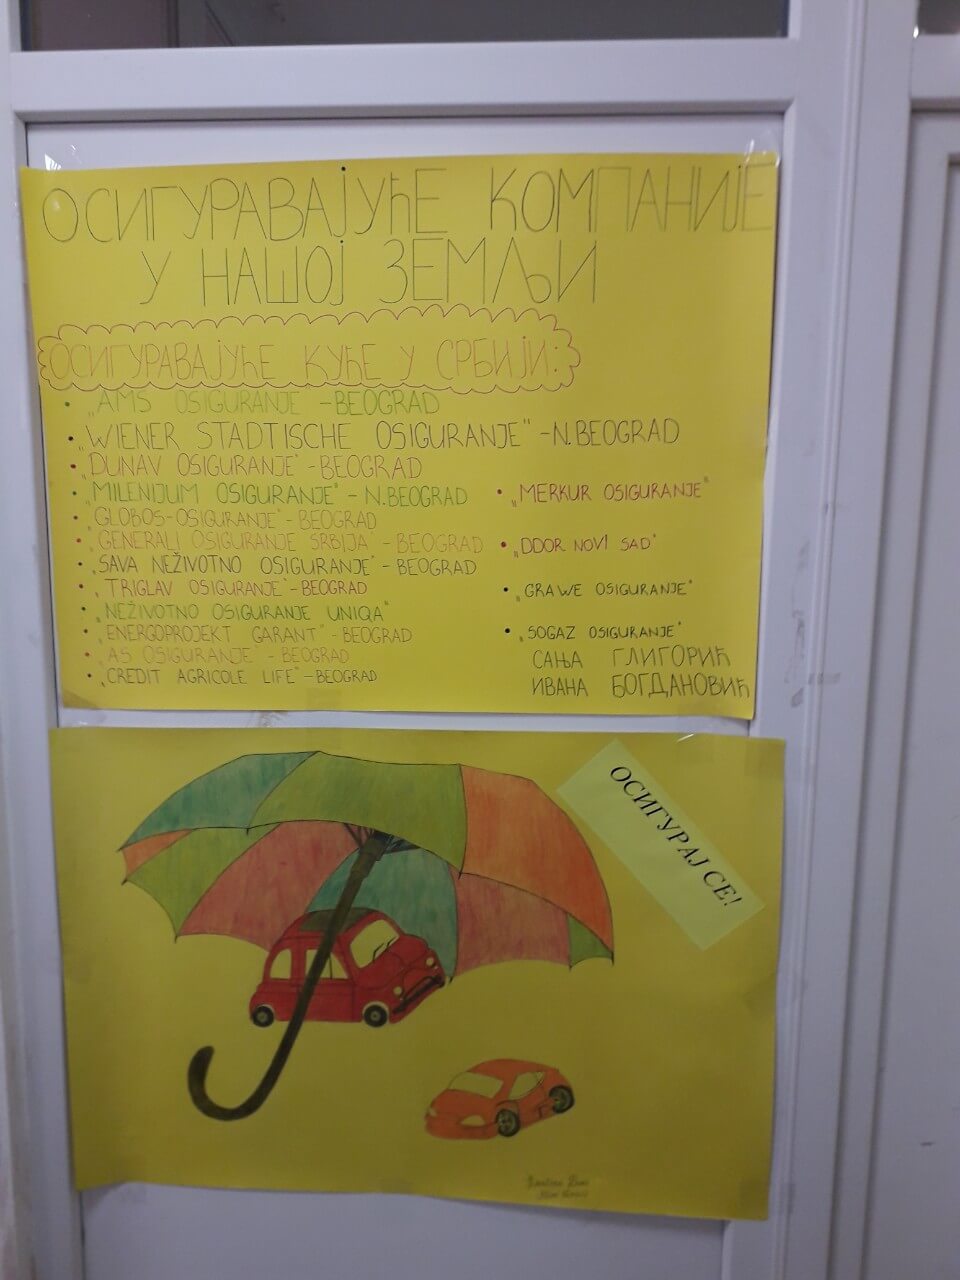 ОСИГУРАВАЈУЋЕ КОМПАНИЈЕ
У НАШОЈ ЗЕМЉИ
ОСИГУРАВАЈУЋЕ КУЋЕ У СРБИЈИ:
• „AMS OSIGURANJE -BEOGRAD
• „WIENER STADTISCHE OSIGURANJE" -N.BEOGRAD
• „DUNAV OSIGURANJE" -BEOGRAD
• „MILENIJUM OSIGURANJE" - N.BEOGRAD
• „GLOBOS-OSIGURANJE" - BEOGRAD
• „GENERALI OSIGURANJE SRBIJA" - BEOGRAD
• „SAVA NEŽIVOTNO OSIGURANJE" - BEOGRAD
• „TRIGLAV OSIGURANJE" - BEOGRAD
• „NEŽIVOTNO OSIGURANJE UNIQA"
• „ENERGOPROJEKT GARANT" - BEOGRAD
• „AS OSIGURANJE" - BEOGRAD
• „CREDIT AGRICOLE LIFE" - BEOGRAD
• „MERKUR OSIGURANJE"
• „DDOR NOVI SAD"
• „GRAWE OSIGURANJE"
• „SOGAZ OSIGURANJE"
САЊА ГЛИГОРИЋ
ИВАНА БОГДАНОВИЋ
ОСИГУРАЈ СЕ!